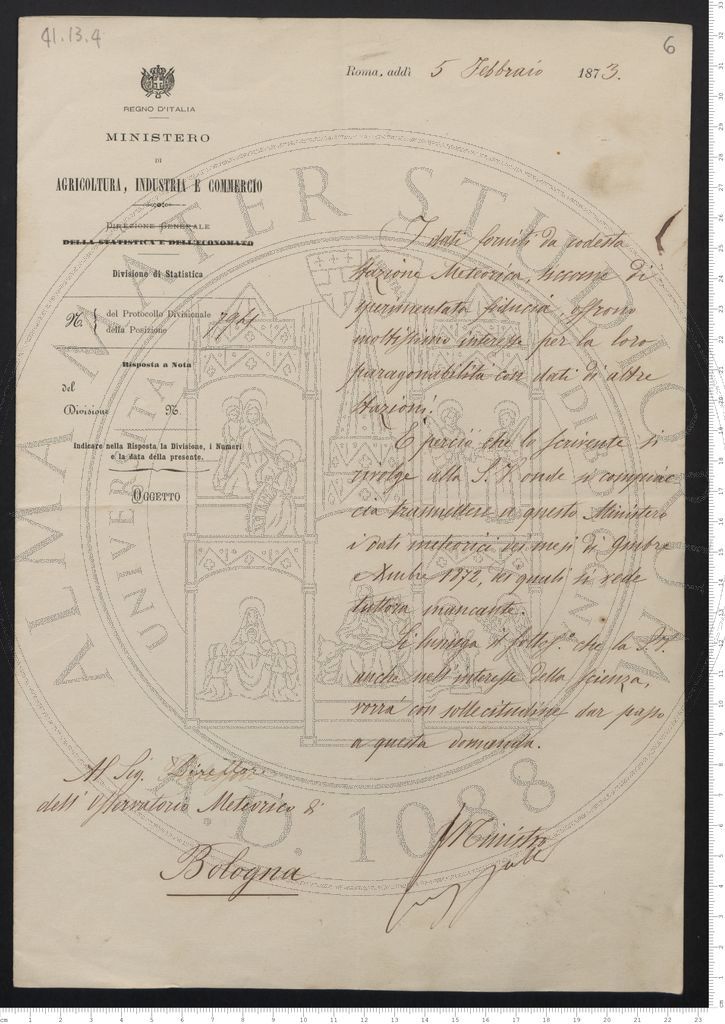 41.13.4
6
Roma, addì 5 Febbraio 1873.
REGNO D'ITALIA
MINISTERO
DI
AGRICOLTURA, INDUSTRIA E COMMERCIO
DIREZIONE GENERALE
DELLA STATISTICA E DELL'ECONOMATO
Divisione di Statistica
N. { del Protocollo Divisionale
della Posizione
Risposta a Nota
del
Divisione N.
Indicare nella Risposta la Divisione, i Numeri
e la data della presente.
OGGETTO
I dati forniti da codesta
Stazione Meteorica, siccome di
sperimentata fiducia, offrono
moltissimo interesse per la loro
paragonabilità con dati di altre
Stazioni.
È perciò che lo scrivente si
rivolge alla S. V. onde si compiac
cia tramettere a questo Ministero
i dati meteorici dei mesi di 9mbre
e Xmbre 1872, dei quali si vede
tuttora mancante.
Si lusinga il sottos.° che la S. V.
anche nell'interesse della scienza,
vorrà con sollecitudine dar passo
a questa domanda.
Al Sig. Direttore
dell'Osservatorio Meteorico di
Bologna
Il Ministro
ALMA MATER STUDIORUM
UNIVERSITÀ
A.D. 1088